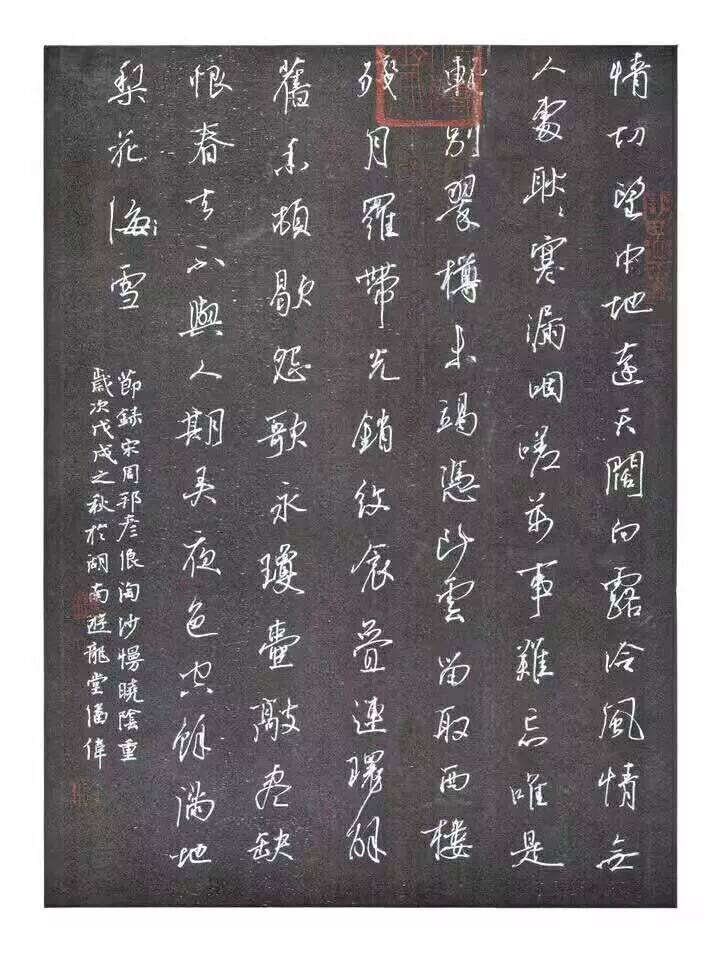 情切望中地遠天闊向露冷風情無
人處耿〻寒漏咽嗟萬事難忘唯是
輕別翠樽未竭憑斷雲留取西樓
殘月羅帶光銷紋衾疊連環解
舊香頓歇怨歌永瓊壺敲盡缺
恨春去不與人期弄夜色空餘滿地
梨花雪
節錄宋周邦彦浪淘沙慢曉陰重
歲次戊戌之秋於湖南遊龍堂潘偉